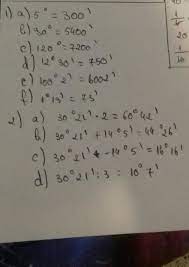 1) a) 5° = 300'
b) 30° = 5400'
c) 120° = 7200'
d) 12°30' = 750'
e) 100°2' = 6002'
f) 1°13' = 73'
2) a) 30°21' · 2 = 60°42'
b) 30°21' + 14°5' = 44°26'
c) 30°21' - 14°5' = 16°16'
d) 30°21' : 3 = 10°7'